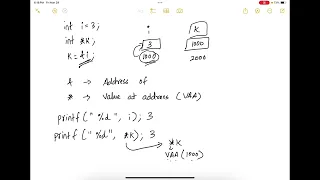 int i = 3;
i
K
int *K;
3
1000
K = &i;
1000
2000
& → Address of
* → Value at address (VAA)
printf(" %d", i); 3
printf(" %d", *K); 3
*K
VAA (1000)